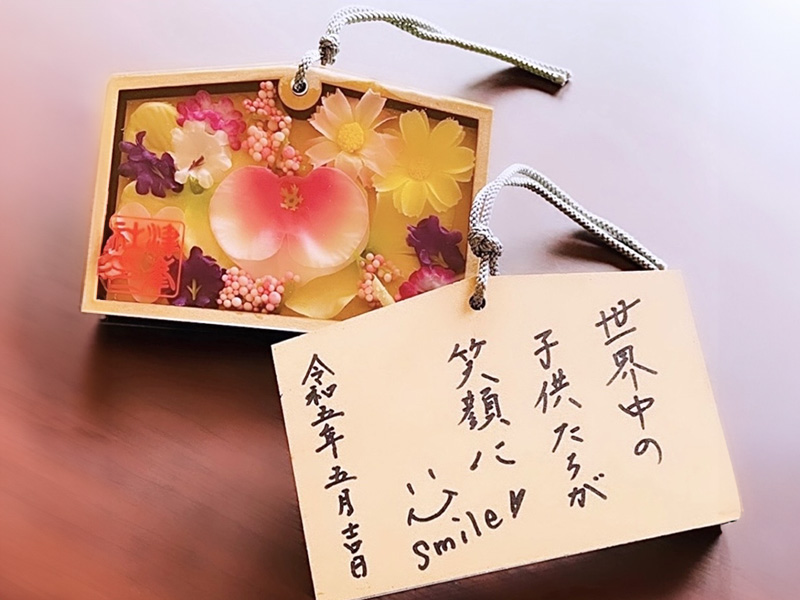 世界中の
子供たちが
笑顔に
smile♥
令和五年五月吉日